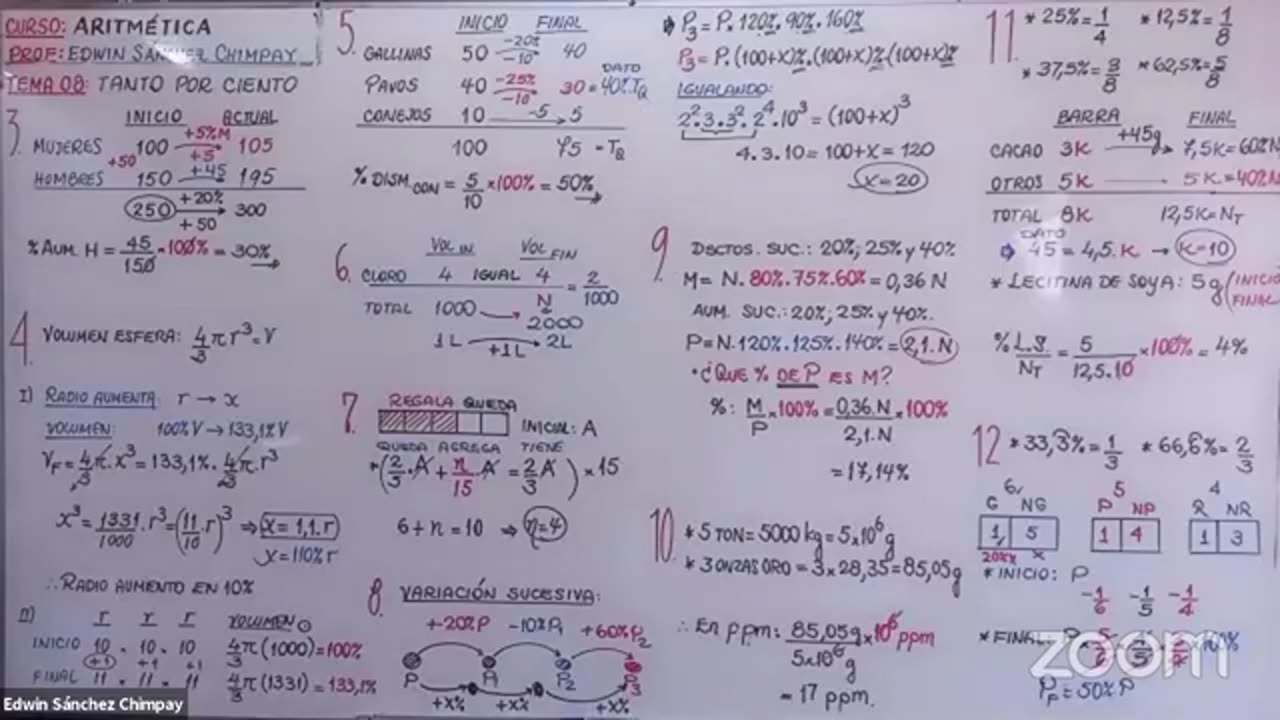 CURSO: ARITMÉTICA
PROF: EDWIN SÁNCHEZ CHIMPAY
TEMA 08: TANTO POR CIENTO
3.
INICIO ACTUAL
+5%M
MUJERES 100 +5 105
+50
HOMBRES 150 +45 195
250 +20% 300
+50
% AUM. H = 45/150 × 100% = 30%
4.
VOLUMEN ESFERA: 4/3 π r³ = V
I) RADIO AUMENTA: r → x
VOLUMEN: 100% V → 133,1% V
V_F = 4/3 π. x³ = 133,1%. 4/3 π. r³
x³ = 1331/1000 . r³ = (11/10 . r)³ ⇒ x = 1,1. r
x = 110% r
∴ RADIO AUMENTO EN 10%
II) r r r VOLUMEN
INICIO 10 . 10 . 10 4/3 π (1000) = 100%
+1 +1 +1
FINAL 11 . 11 . 11 4/3 π (1331) = 133,1%
5.
INICIO FINAL
GALLINAS 50 -20% -10 40
DATO
PAVOS 40 -25% -10 30 = 40% T_Q
CONEJOS 10 -5 5
100 75 = T_Q
% DISM CON = 5/10 × 100% = 50%
6.
VOL IN VOL FIN
CLORO 4 IGUAL 4 = 2/1000
TOTAL 1000 → N 2000
1L → 2L
+1L
7.
REGALA QUEDA
INICIAL: A
QUEDA AGREGA TIENE
* (2/5 . A + n/15 . A = 2/3 A) × 15
6 + n = 10 ⇒ n = 4
8. VARIACIÓN SUCESIVA:
+20%P -10%P₁ +60%P₂
P P₁ P₂ P₃
+x% +x% +x%
P₃ = P. 120%. 90%. 160%
P₃ = P. (100+x)%. (100+x)%. (100+x)%
IGUALANDO:
2². 3. 3². 2⁴. 10³ = (100+x)³
4. 3. 10 = 100+x = 120
x = 20
9
DSCTOS. SUC.: 20%; 25% y 40%
M = N. 80%. 75%. 60% = 0,36 N
AUM. SUC.: 20%; 25% y 40%.
P = N. 120%. 125%. 140% = 2,1. N
* ¿QUE % DE P ES M?
%: M/P × 100% = 0,36. N/2,1. N × 100%
= 17,14%
10.
* 5 TON = 5000 kg = 5×10⁶ g
* 3 ONZAS ORO = 3 × 28,35 = 85,05 g
∴ En ppm: 85,05 g/5×10⁶ g × 10⁶ ppm
= 17 ppm.
11
* 25% = 1/4 * 12,5% = 1/8
* 37,5% = 3/8 * 62,5% = 5/8
BARRA FINAL
+45g
CACAO 3K 7,5K = 60% N
OTROS 5K 5K = 40% N
TOTAL 8K 12,5K = N_T
DATO
45 = 4,5. K → K = 10
* LECITINA DE SOYA: 5g (INICIO
FINAL
% L.S./N_T = 5/12,5. 10 × 100% = 4%
12
* 33,3% = 1/3 * 66,6% = 2/3
6 5 4
G NG P NP R NR
1 5 1 4 1 3
20% x
* INICIO: P
-1/6 -1/5 -1/4
* FINAL:
P_F = 50% P
zoom
Edwin Sánchez Chimpay